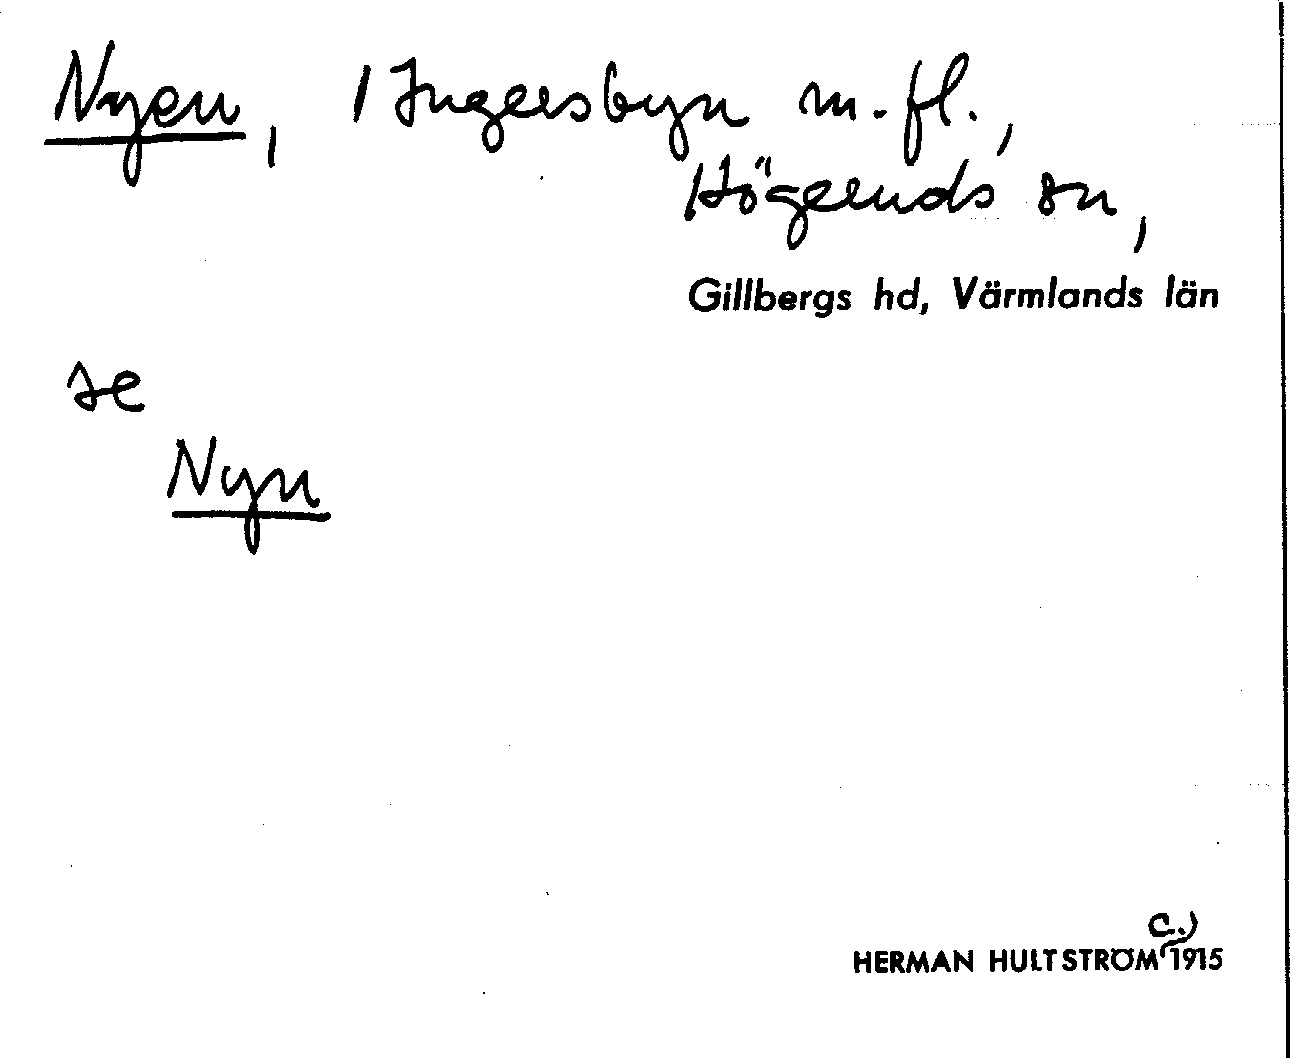 Nyen, 1 Ingersbyn m.fl.,
Högeruds sn,
Gillbergs hd, Värmlands län
se
Nyn
c.)
HERMAN HULTSTRÖM 1915